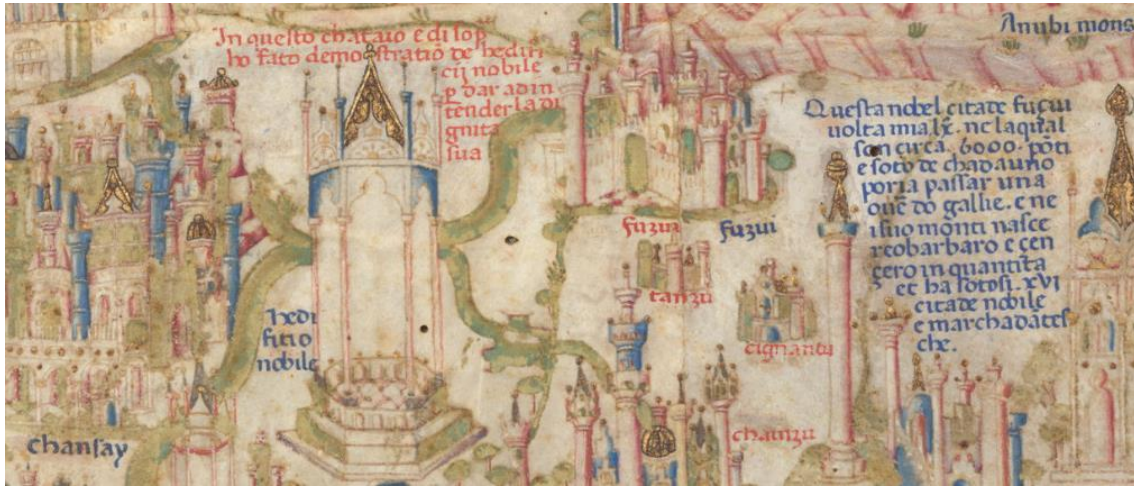 In questo chataio e di sop
ho fato demostratiō de hedifi
cij nobile
p dar ad in
tender la di
gnita
sua
Anubi mons
Questa nobel citate fuçui
volta mia lx. ne la qual
son circa .6000. pōti
e soto de chadauno
poria passar una
over do gallie. e ne
i suo monti nasce
reobarbaro e çen
çero in quantita
et ha sotosi. xvi
citade nobile
e marchadātes
che.
fuzui
fuzui
tanzu
cignantu
hedi
fitio
nobile
chansay
chainzu